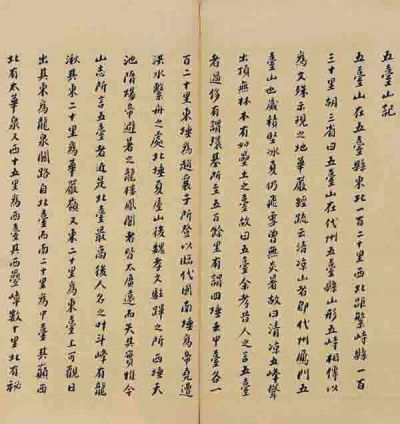 五臺山記
五臺山在五臺縣東北一百二十里西北距繁峙縣一百
三十里胡三省曰五臺山在代州五臺縣山形五峙相傳以
為文殊示現之地華嚴經疏云清涼山者即代州雁門五
臺山也歲積堅冰夏仍飛雪曽無炎暑故曰清涼五峰聳
出頂無林木有如壘土之臺故曰五臺余考昔人之言五臺
者過侈有謂環基所至五百餘里有謂四埵去中臺各一
百二十里東埵為趙襄子所登以臨代國南埵為帝堯遭
洪水繫舟之處北埵夏屋山後魏孝文駐蹕之所西埵天
池隋煬帝避暑之龍樓鳳闕者皆太廣遠而失其實惟今
山志所言五臺者近是北臺最高後人名之叶斗峰有龍
湫其東二十里為華嚴嶺又東二十里為東臺上可觀日
出其東為龍泉關路自北臺而南二十里為中臺其巔西
北有太華泉又西十五里為西臺其西疊嶂數十里北有祕